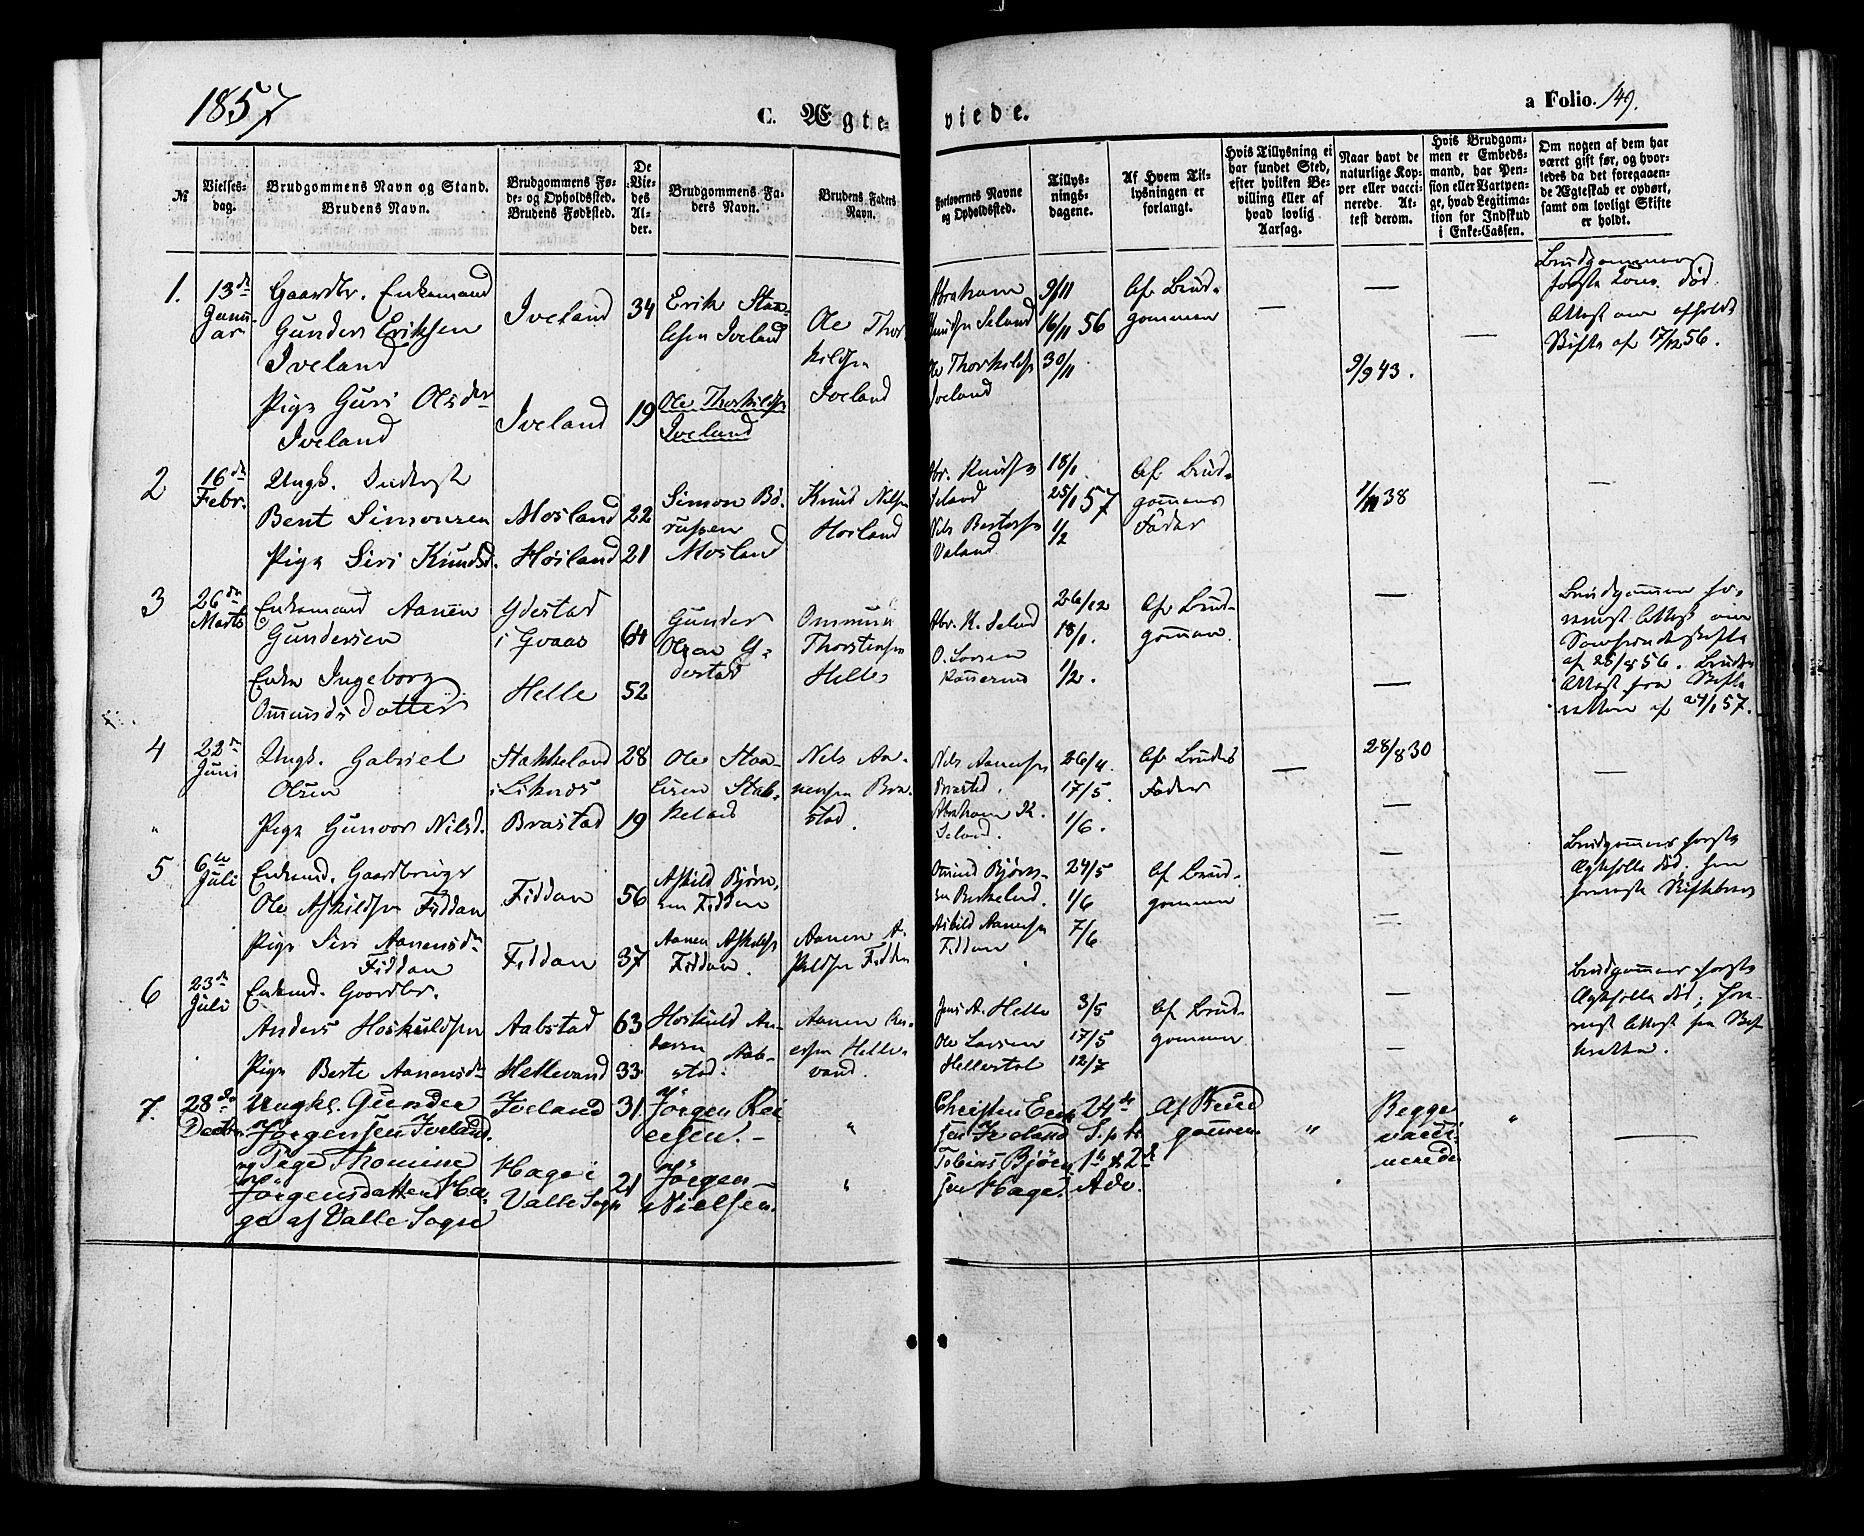 1857
C. Ægte-
viede.
a Folio. 149.
№
Vielses-
dag.
Brudgommens Navn og Stand.
Brudens Navn.
Brudgommens Fø-
de- og Opholdssted.
Brudens Fødested.
De
Vie-
des
Al-
der.
Brudgommens Fa-
ders Navn.
Brudens Faders
Navn.
Forlovernes Navne
og Opholdssted.
Tillys-
nings-
dagene.
Af Hvem Til-
lysningen er
forlangt.
Hvis Tillysning ei
har fundet Sted,
efter hvilken Be-
villing eller af
hvad lovlig
Aarsag.
Naar havt de
naturlige Kop-
per eller vacci-
nerede. At-
test derom.
Hvis Brudgom-
men er Embeds-
mand, har Pen-
sion eller Vartpen-
ge, hvad Legitima-
tion for Indskud
i Enke-Cassen.
Om nogen af dem har
været gift før, og hvor-
ledes da det foregaaen-
de Ægteskab er ophørt,
samt om lovligt Skifte
er holdt.
1.
13de
Janu-
ar
Gaardbr. Enkemand
Gunder Eriksen
Iveland
Pige Guri Olsdr
Iveland
Iveland
Iveland
34
19
Erik Staa-
lesen Iveland
Ole Thorkilds
Iveland
Ole Thor
kildsen
Iveland
Abraham
Knudsen Seland
Ole Thorkilds
Iveland
9/11
16/11 56
30/11
Af Brud-
gommen
—
—
9/9 43.
—
Brudgommens
første Kone død.
Attest om afholdt
Skifte af 17/12 56.
2
16de
Febr.
Ungk.
Bent Simonsen
Pige Siri Knudsd.
Mosland
Høiland
22
21
Simon Bø-
Mosland
Knud Nils
Abr. Knuds
Seland
Nils
Valand
18/1
25/1 57
1/2
Af Brud-
gommens
Fader
1/11 38
—
3
26de
Marts
Enkemand Aanen
Gundersen
Enke Ingeborg
Omundsdotter
Ydestad
i Qvaas
Helle
64
52
Gunder
Olsen Y-
destad
Ommund
Thorstens
Helle
Abr. K. Seland
O. Larsen
26/12
18/1.
1/2.
Af Brud-
gommen.
—
—
Brudgommen fo-
reviist Attest om
af 28/8 56. Bruden
Attest fra Skifte
retten af 24/1 57.
4
22de
Juni
Ungk. Gabriel
Olsen
Pige Gunvor Nilsd.
Stakkeland
i Liknes
Brastad
28
19
Ole Staa-
lesen Stak-
keland
Nils Aa-
nensen Bra-
stad.
Nils Aanens
Brastad.
Abraham K.
Seland.
26/4.
17/5.
1/6.
Af Brudens
Fader
—
28/8 30
—
—
5
6te
Juli
Enkemd. Gaardbruger
Ole Askildsen Fiddan
Pige Siri Aanensdr
Fiddan
Fiddan
Fiddan
56
37
Askild Bjørn
sen Fiddan
Aanen Askilds
Fiddan.
Aanen A-
skildsen Fiddan
Omund Bjørns-
sen Birkeland.
Askild Aanens
Fiddan
24/5
1/6
7/6
Af Brud-
gommen
—
—
Brudgommens første
Ægtefølle død. Har
foreviist Skiftebrev
6
23de
Juli
Enkemd. Gaardbr.
Anders Hoskuldsen
Pige Berte Aanensdr
Aabstad
Hellevand
63
33
Hoskuld An-
dersen Aab-
stad.
Aanen An-
Helle-
vand.
Jens A. Helle
Ole Larsen
3/5
17/5
12/7
Af Brud-
gommen
—
—
Brudgommens første
Ægtefølle død; fore-
viist Attest fra Skif-
teretten.
7.
28de
Decbr.
Ungkl. Gunder
Jörgensen Iveland.
og Pige Thomine
Jörgensdatter Ha-
ge af Valle Sogn
Iveland
Hage i
Valle Sogn
31.
21
Jörgen Rei
ersen.
Jörgen
Nielsen.
"
"
Christen Erik
sen Iveland
Tobias Björn
sen Hage.
24de
S. p. tr.
1te & 2d
Adv.
Af Brud
gommen
"
Begge
vacci
nerede
"
—